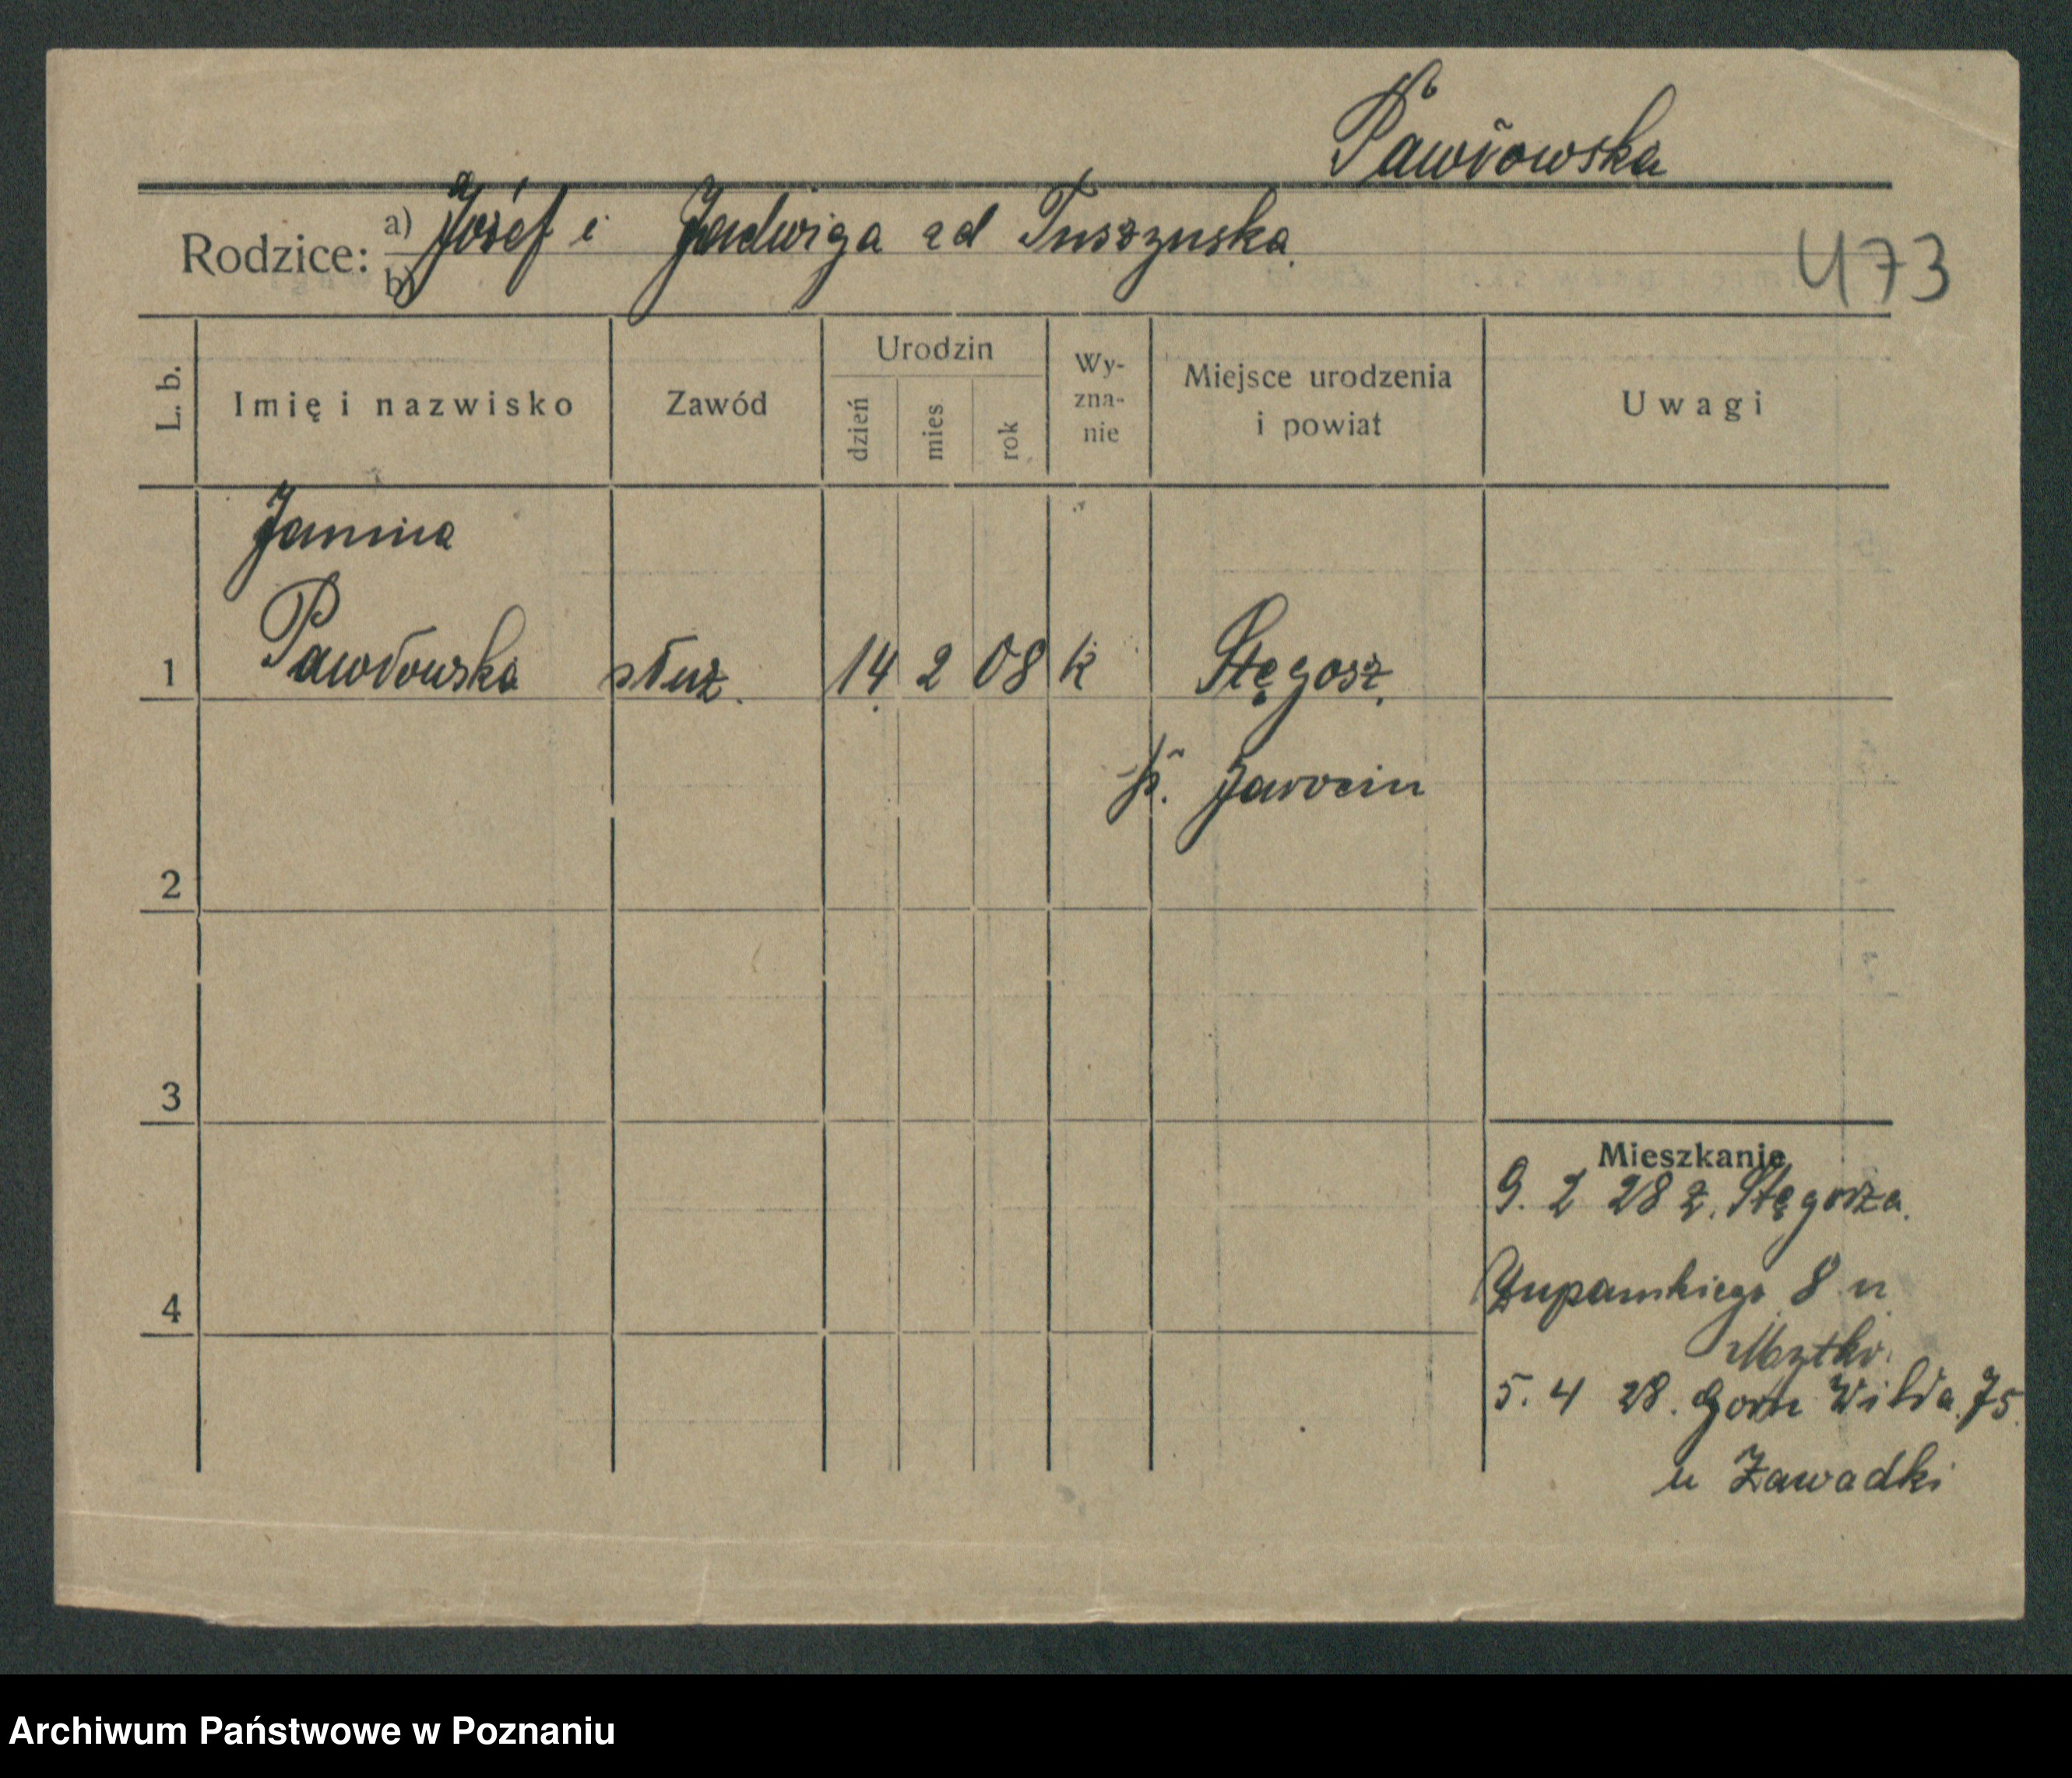 Pawłowska
Rodzice: a) Józef i Jadwiga zd Tuszynska
b)
473
L. b.
Imię i nazwisko
Zawód
Urodzin
dzień
mies
rok
Wy-
zna-
nie
Miejsce urodzenia
i powiat
Uwagi
Janina
1 Pawłowska służ. 14 2 08 k Stęgosz
p. Jarocin
2
3
4
Mieszkanie
9. 2 28 z. Stęgosza.
Żupańskiego 8 u
5. 4 28. Górn Wilda 75
u Zawadki
Archiwum Państwowe w Poznaniu